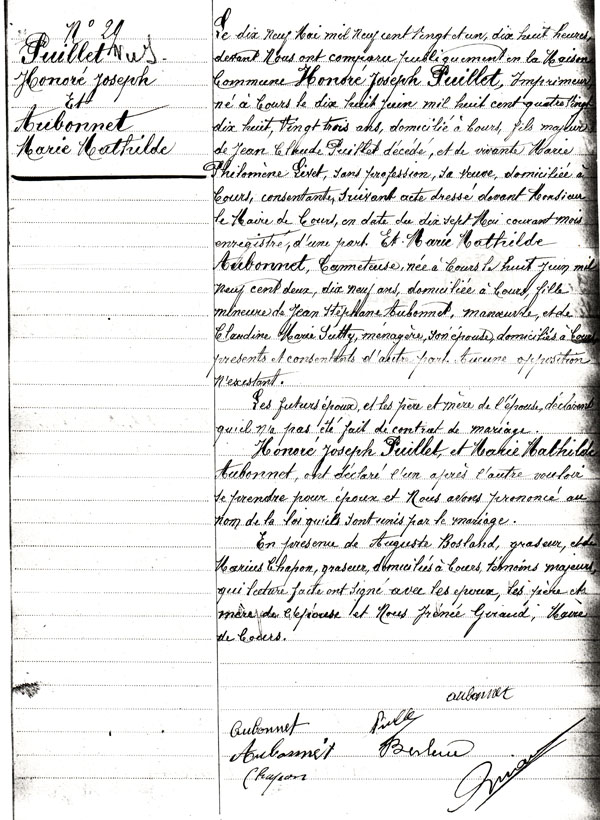 N° 20
Puillet
Honoré Joseph
Et
Aubonnet
Marie Mathilde
Le dix neuf Mai mil neuf cent vingt et un, dix huit heures,
devant Nous ont comparu publiquement en la Maison
Commune Honoré Joseph Puillet, Imprimeur,
né à Cours le dix huit Juin mil huit cent quatre vingt
dix huit, Vingt trois ans, domicilié à Cours, fils majeur
de Jean Claude Puillet décédé, et de vivante Marie
Philomène Livet, sans profession, sa veuve, domiciliée à
Cours, consentante, suivant acte dressé devant Monsieur
le Maire de Cours, en date du dix sept Mai courant mois
enregistré, d'une part. Et Marie Mathilde
Aubonnet, Canneteuse, née à Cours le huit Juin mil
neuf cent deux, dix neuf ans, domiciliée à Cours, fille
mineure de Jean Stéphane Aubonnet, manœuvre, et de
Claudine Marie Sutty, ménagère, son épouse, domiciliés à Cours
présents et consentants d'autre part. Aucune opposition
n'existant.
Les futurs époux, et les père et mère de l'épouse, déclarent
qu'il n'a pas été fait de contrat de mariage.
Honoré Joseph Puillet, et Marie Mathilde
Aubonnet, ont déclaré l'un après l'autre vouloir
se prendre pour époux et Nous avons prononcé au
nom de la loi qu'ils sont unis par le mariage.
En présence de Auguste Bosland, graseur, et de
Marius Chapon, graseur, domiciliés à Cours, témoins majeurs,
qui lecture faite ont signé avec les époux, les père et
mère de l'épouse et Nous Irénée Giraud, Maire
de Cours.
aubonnet
aubonnet
Aubonnet
Chapon